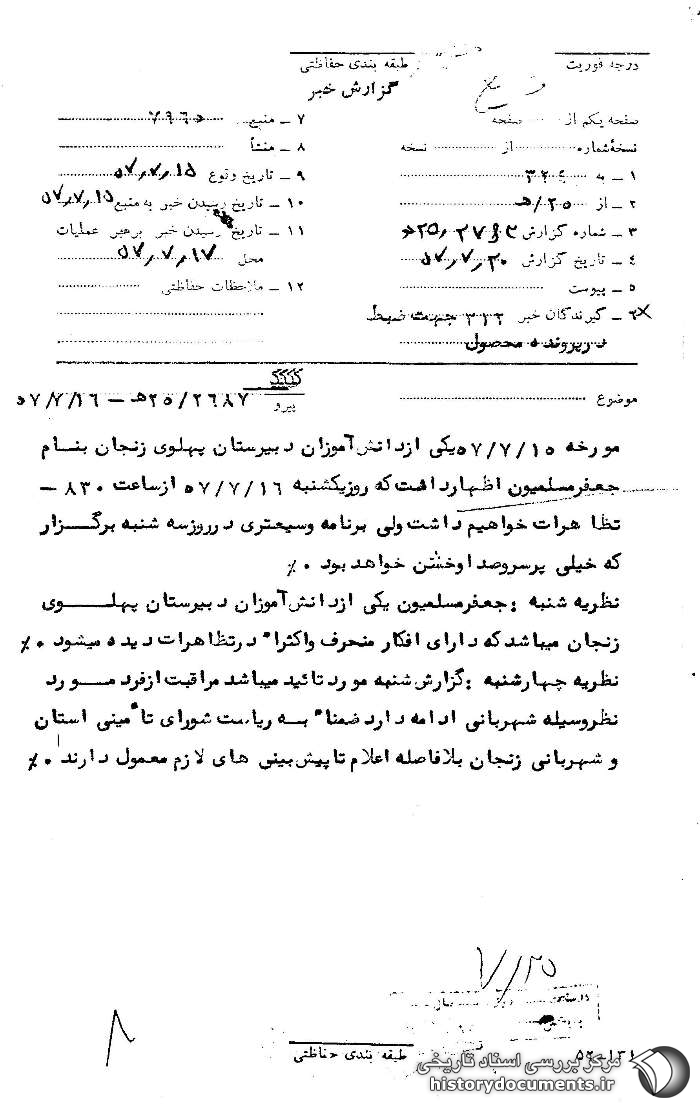 درجه فوریت
طبقه بندی حفاظتی
گزارش خبر
صفحه یکم از صفحه
نسخهٔ شماره از نسخه
۱ ـ به ۳۲٤
۲ ـ از ۲۵/ه
۳ ـ شماره گزارش
٤ ـ تاریخ گزارش ۵۷٫۷٫۲۰
۵ ـ پیوست
۶ ـ گیرندگان خبر ۳۱۲ جهت ضبط
در پرونده محصول
۷ ـ منبع ۷۹۶۵
۸ ـ منشأ
۹ ـ تاریخ وقوع ۵۷٫۷٫۱۵
۱۰ ـ تاریخ رسیدن خبر به منبع ۵۷٫۷٫۱۵
۱۱ ـ تاریخ رسیدن خبر برهبر عملیات
محل ۵۷٫۷٫۱۷
۱۲ ـ ملاحظات حفاظتی
موضوع
پیرو ۲۶۸۷/۲۵ه‍ ـ ۵۷/۷/۱۶
مورخه ۵۷/۷/۱۵ یکی ازدانش آموزان دبیرستان پهلوی زنجان بنام
جعفرمسلمیون اظهارداشت که روزیکشنبه ۵۷/۷/۱۶ ازساعت ۸۳۰ ـ
تظاهرات خواهیم داشت ولی برنامه وسیعتری درروزسه شنبه برگزار
که خیلی پرسروصدا وخشن خواهد بود ٪
نظریه شنبه : جعفرمسلمیون یکی ازدانش آموزان دبیرستان پهلـــوی
زنجان میباشد که دارای افکار منحرف واکثراً درتظاهرات دیده میشود ٪
نظریه چهارشنبه : گزارش شنبه مورد تائید میباشد مراقبت ازفرد مـــورد
نظروسیله شهربانی ادامه دارد ضمناً به ریاست شورای تأمینی استان
و شهربانی زنجان بلافاصله اعلام تاپیش بینی های لازم معمول دارند ٪
۷/۲۵
۸
طبقه بندی حفاظتی
۵۲-۱۳۱
مرکز بررسی اسناد تاریخی
historydocuments.ir